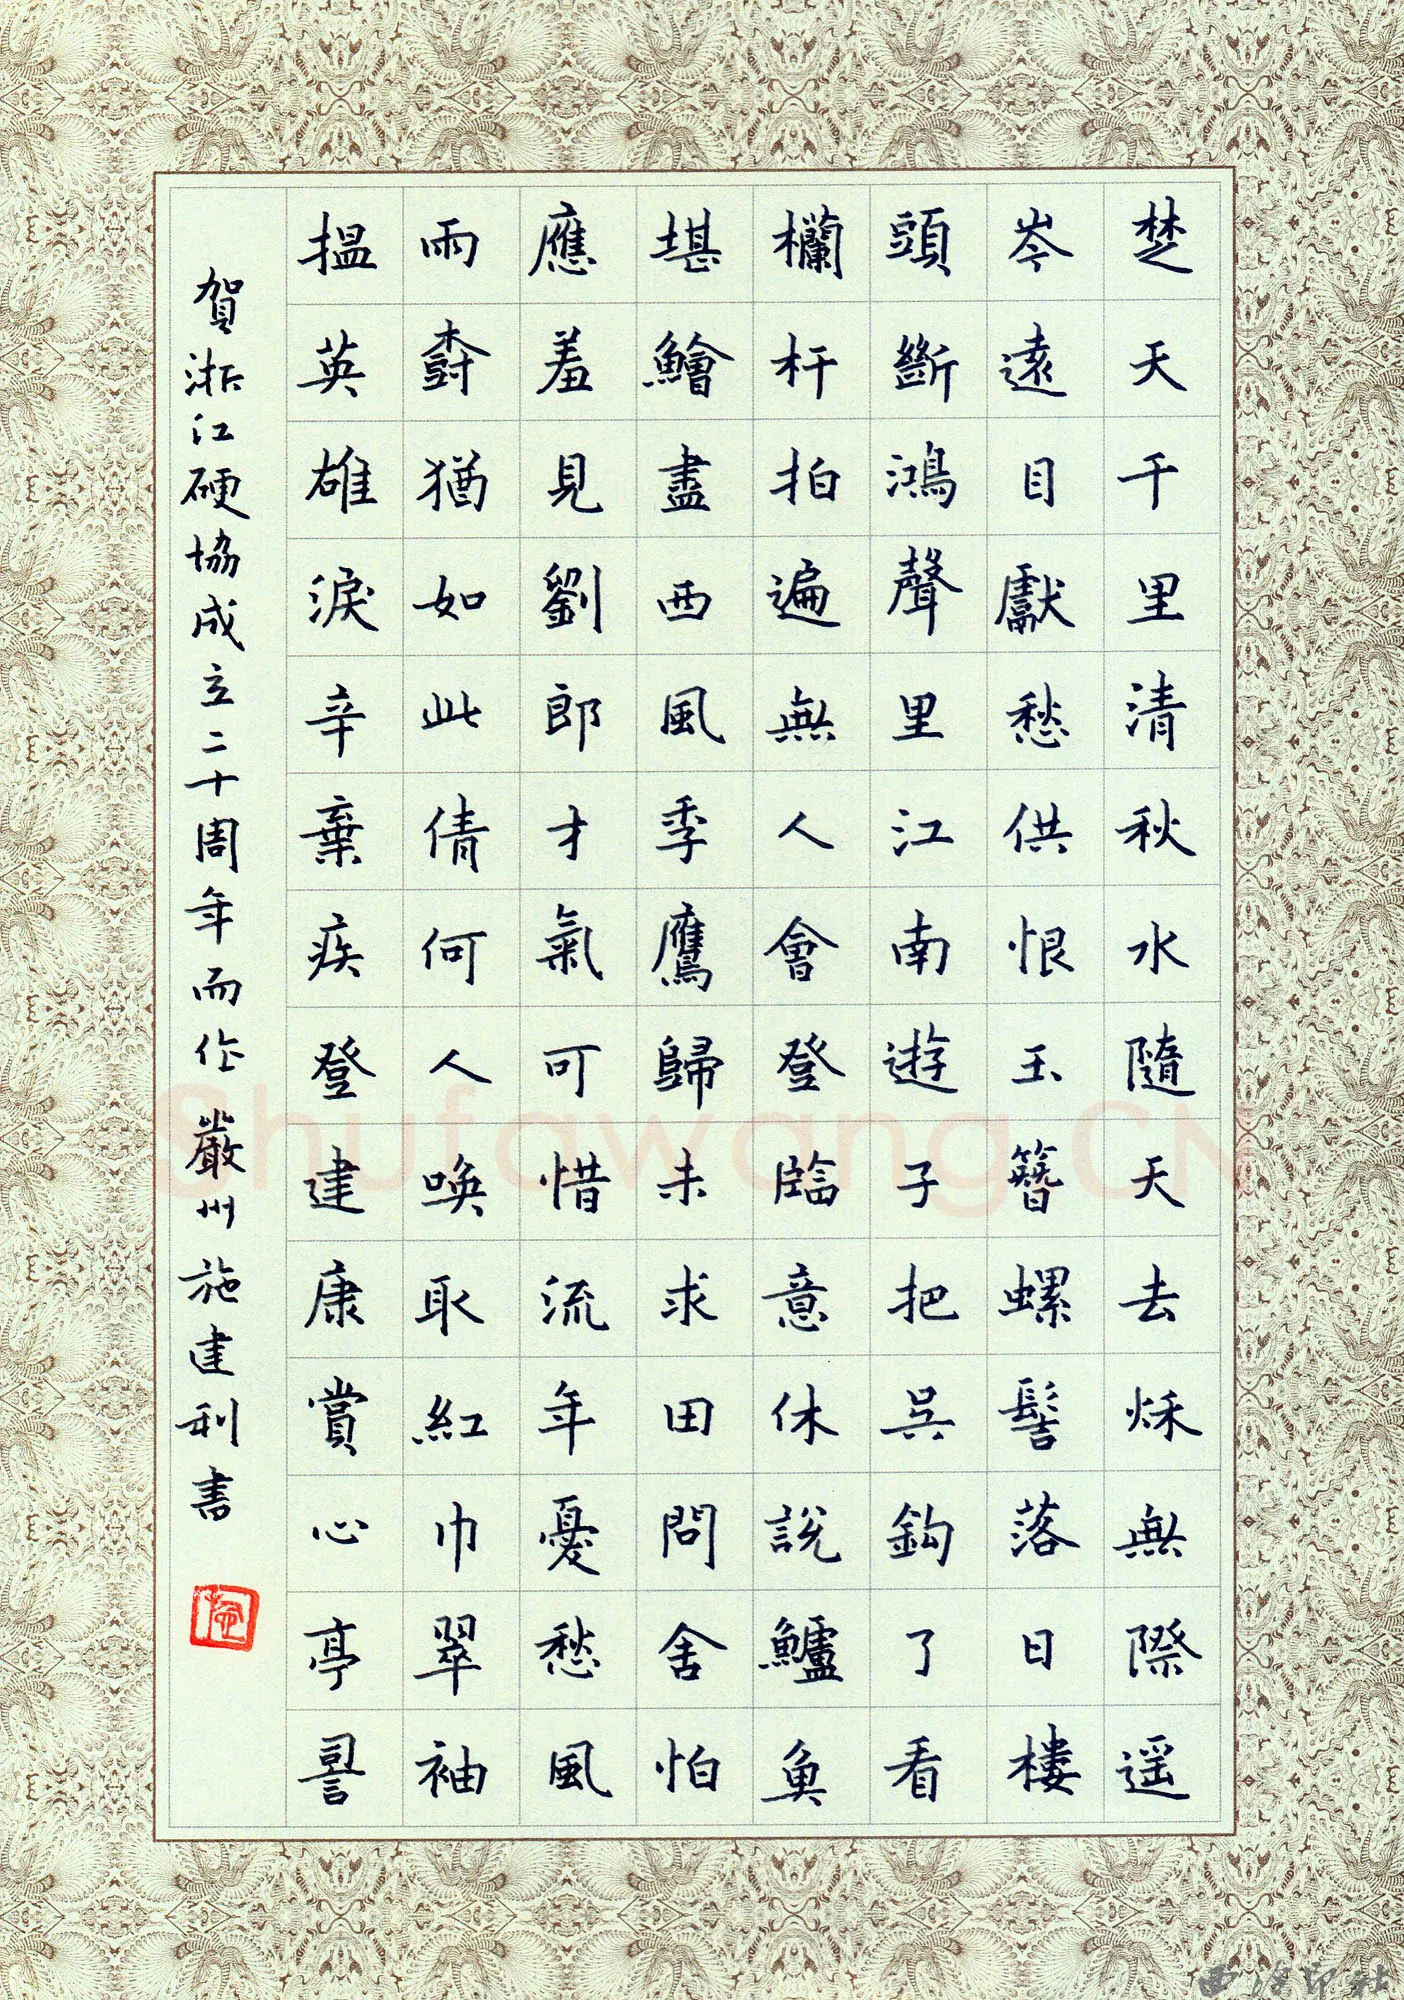 楚天千里清秋水隨天去秌無際遥
岑遠目獻愁供恨玉簪螺髻落日樓
頭斷鴻聲里江南遊子把吳鈎了看
欄杆拍遍無人會登臨意休説鱸魚
堪鱠盡西風季鷹歸未求田問舍怕
應羞見劉郎才氣可惜流年憂愁風
雨尌猶如此倩何人唤取紅巾翠袖
揾英雄淚辛棄疾登建康賞心亭
賀浙江硬協成立二十周年而作 嚴州施建利書
Shufawang.CN
西泠印社